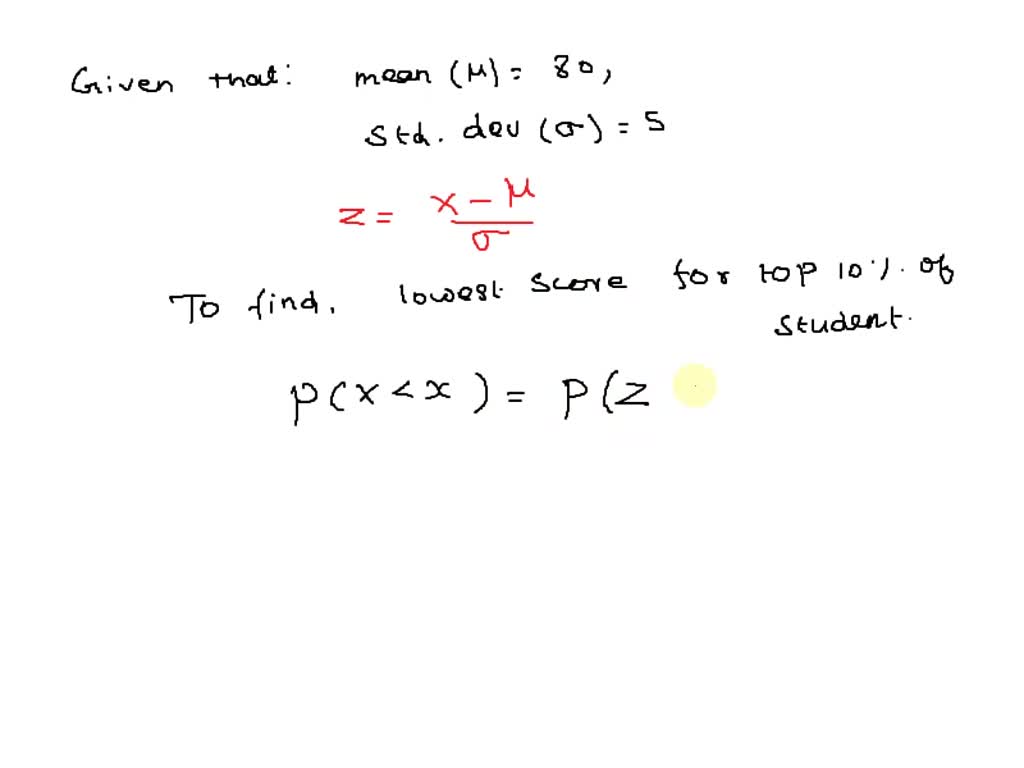 Given that: mean (μ) = 80,
Std. dev (σ) = 5
z = x - μ / σ
To find, lowest score for top 10%. of
student.
P(X < x) = P(Z